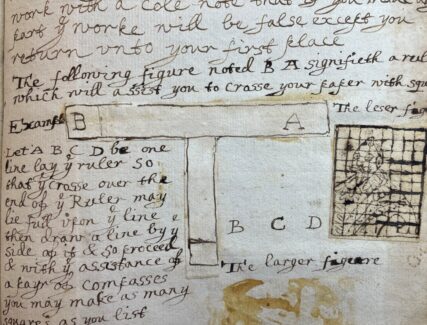 work with a Cole note that if you
part yͤ worke will be false except you
return vnto your first place
The following figure noted B A signifieth a rul
which will assist you to Crosse your paper with squ
Exampl B A The leser fi
Let A B C D be one
line lay yͤ ruler So
that yͤ Crosse over the
end of yͤ Ruler may
lie full vpon yͤ line
then draw a line by yͤ
side of it & so proceed
& with yͤ assistance of
a payr of Compasses
you may make as many
squares as you list
B C D
The larger figure